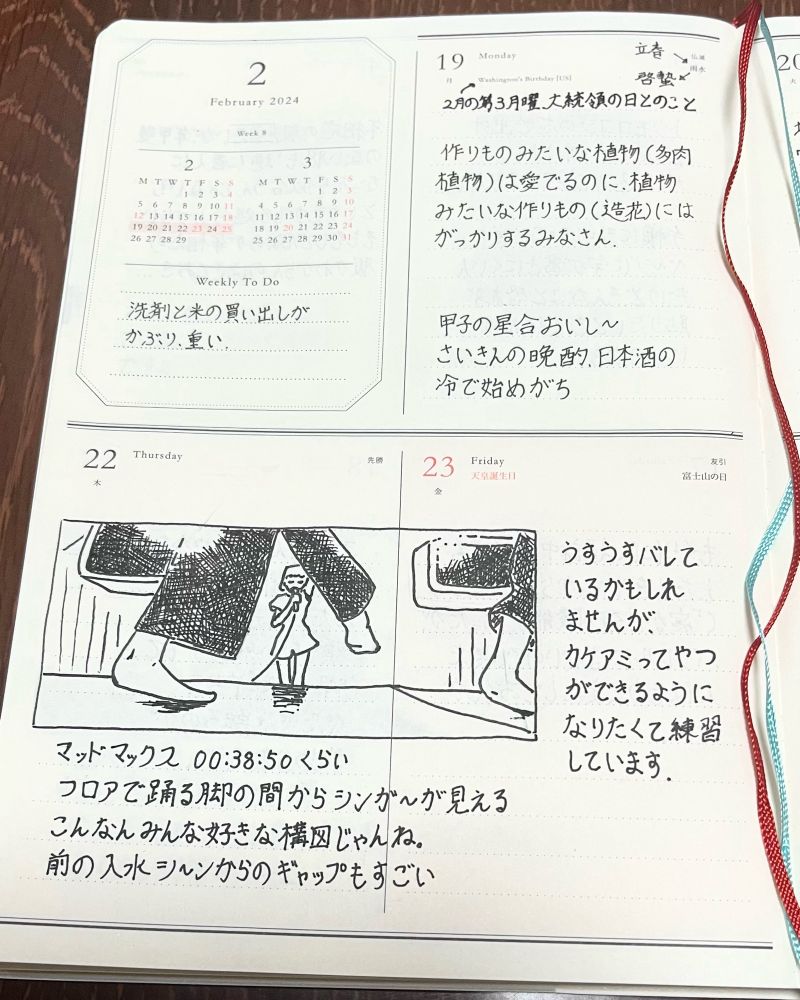 2
February 2024
Week 8
2
M T W T F S S
1 2 3 4
5 6 7 8 9 10 11
12 13 14 15 16 17 18
19 20 21 22 23 24 25
26 27 28 29
3
M T W T F S S
1 2 3
4 5 6 7 8 9 10
11 12 13 14 15 16 17
18 19 20 21 22 23 24
25 26 27 28 29 30 31
Weekly To Do
洗剤と米の買い出しが
かぶり、重い.
19 Monday
月
Washington's Birthday [US]
仏滅
雨水
立春
啓蟄
2月の第3月曜、大統領の日とのこと
作りものみたいな植物(多肉
植物)は愛でるのに、植物
みたいな作りもの(造花)には
がっかりするみなさん.
甲子の星合おいし〜
さいきんの晩酌、日本酒の
冷で始めがち
20
火
22 Thursday
木
先勝
23 Friday
金
天皇誕生日
友引
富士山の日
うすうすバレて
いるかもしれ
ませんが、
カケアミってやつ
ができるように
なりたくて練習
しています.
マッドマックス 00:38:50くらい
フロアで踊る脚の間からシンガ〜が見える
こんなんみんな好きな構図じゃんね。
前の入水シ〜ンからのギャップもすごい